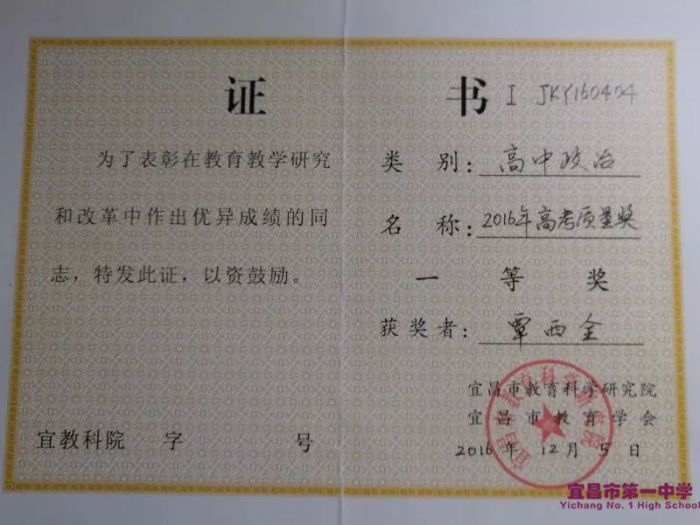 证 书 I JKY160404
为了表彰在教育教学研究
和改革中作出优异成绩的同
志，特发此证，以资鼓励。
宜教科院 字 号
类 别：高中政治
名 称：2016年高考质量奖
一 等 奖
获奖者：覃西全
宜昌市教育科学研究院
宜昌市教育学会
2016年12月5日
宜昌市教育科学研究院
宜昌市第一中学
Yichang No. 1 High School